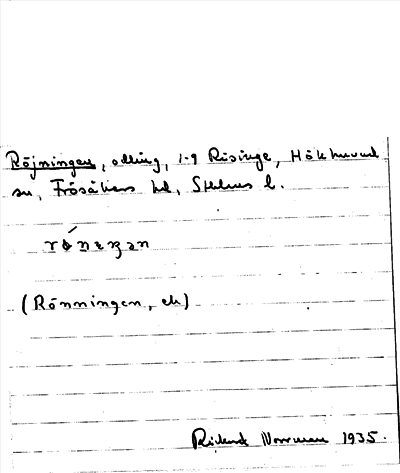 Röjningen, odling, 1-9 Risinge, Hökhuvud
sn, Frösåkers hd, Sthlms l.
(Rönningen, ek)
Rickard Norrman 1935.